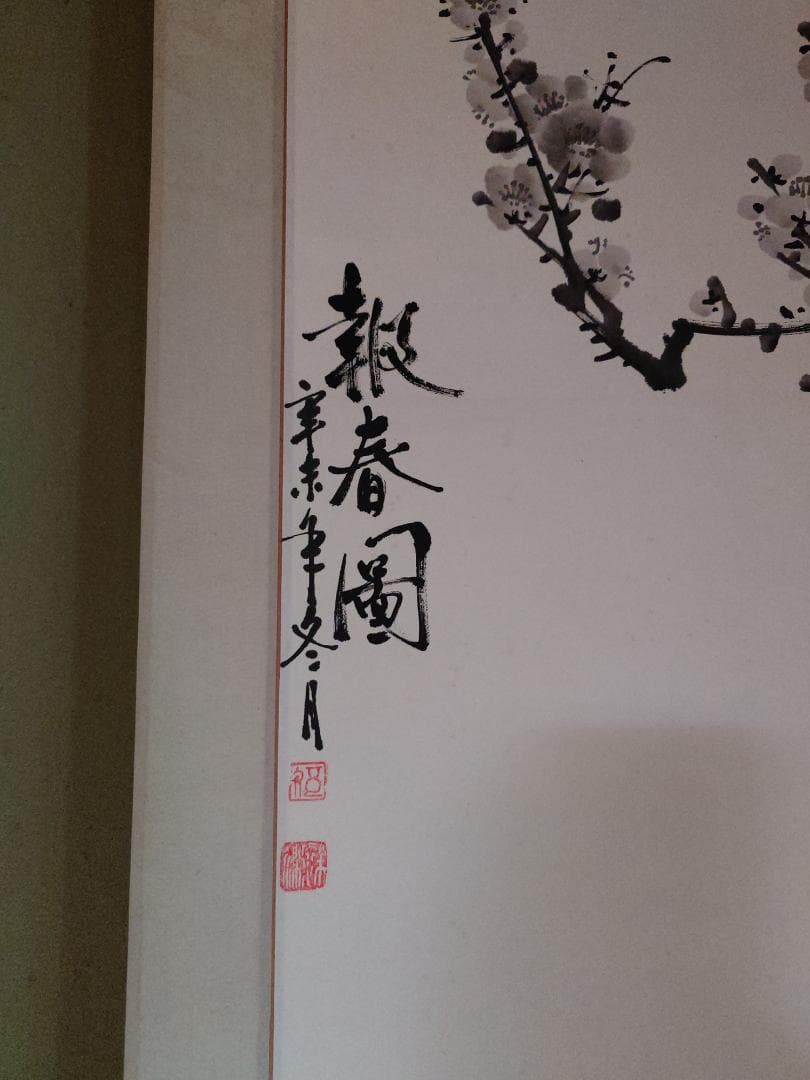 報春圖
辛未年冬月